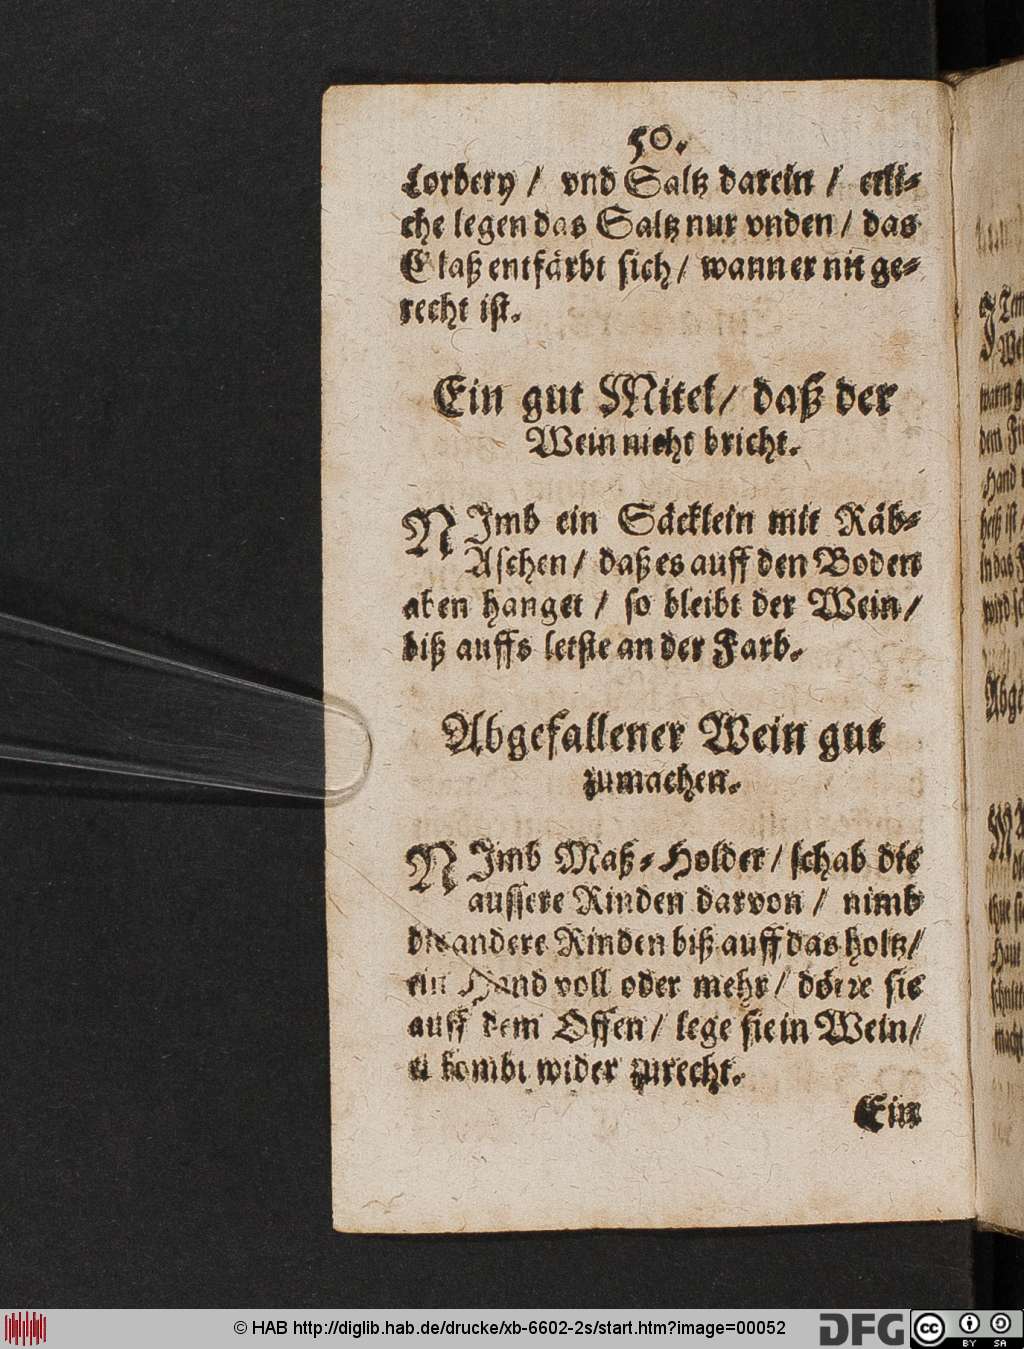 50.
Lorbery / vnd Saltz darein / etli-
che legen das Saltz nur vnden / das
Glaß entfärbt sich / wann er nit ge-
recht ist.
Ein gut Mitel / daß der
Wein nicht bricht.
NImb ein Säcklein mit Räb-
Aschen / daß es auff den Boden
aben hanget / so bleibt der Wein /
biß auffs letste an der Farb.
Abgefallener Wein gut
zumachen.
NImb Maß-Holder / schab die
aussere Rinden darvon / nimb
die andere Rinden biß auff das holtz /
ein Hand voll oder mehr / dörre sie
auff dem Offen / lege sie in Wein /
er kombt wider zurecht.
Ein
© HAB http://diglib.hab.de/drucke/xb-6602-2s/start.htm?image=00052
DFG
cc
BY SA